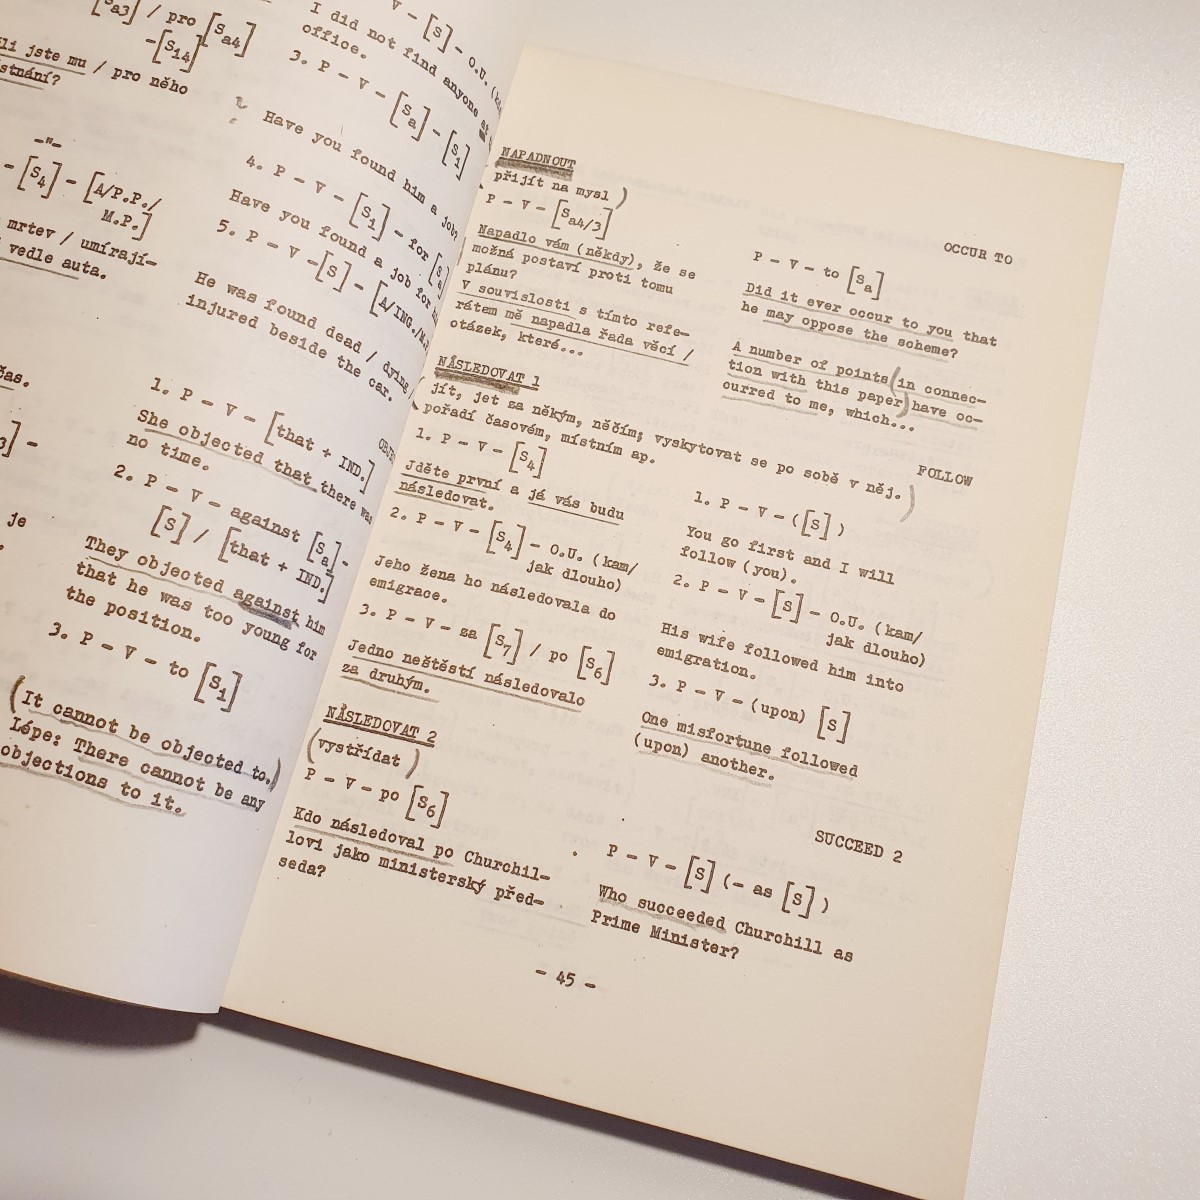 [Sa3] / pro [Sa4]
-[S14]
li jste mu / pro něho
stnání?
-"-
- [S4] - [A/P.P./
M.P.]
mrtev / umírají-
vedle auta.
čas.
] -
je
V - [S] - O.U.
I did not find anyone at
office.
3. P - V - [Sa] - [S1]
Have you found him a job?
4. P - V - [S1] - for [Sa]
Have you found a job for
5. P - V - [S] - [A/ING./M.P.
He was found dead / dying /
injured beside the car.
1. P - V - [that + IND.]
She objected that there was
no time.
2. P - V - against [Sa] -
[S] / [that + IND.]
They objected against him
that he was too young for
the position.
3. P - V - to [S1]
(It cannot be objected to.)
Lépe: There cannot be any
objections to it.
NAPADNOUT
(přijít na mysl)
P - V - [Sa4/3]
Napadlo vám (někdy), že se
možná postaví proti tomu
plánu?
V souvislosti s tímto refe-
rátem mě napadla řada věcí /
otázek, které...
OCCUR TO
P - V - to [Sa]
Did it ever occur to you that
he may oppose the scheme?
A number of points (in connec-
tion with this paper) have oc-
curred to me, which...
NÁSLEDOVAT 1
(jít, jet za někým, něčím; vyskytovat se po sobě v něj.
pořadí časovém, místním ap.)
1. P - V - [S4]
Jděte první a já vás budu
následovat.
2. P - V - [S4] - O.U. (kam/
jak dlouho)
Jeho žena ho následovala do
emigrace.
3. P - V - za [S7] / po [S6]
Jedno neštěstí následovalo
za druhým.
FOLLOW
1. P - V - ([S])
You go first and I will
follow (you).
2. P - V - [S] - O.U. (kam/
jak dlouho)
His wife followed him into
emigration.
3. P - V - (upon) [S]
One misfortune followed
(upon) another.
NÁSLEDOVAT 2
(vystřídat)
P - V - po [S6]
Kdo následoval po Churchil-
lovi jako ministerský před-
seda?
SUCCEED 2
P - V - [S] (- as [S])
Who succeeded Churchill as
Prime Minister?
- 45 -